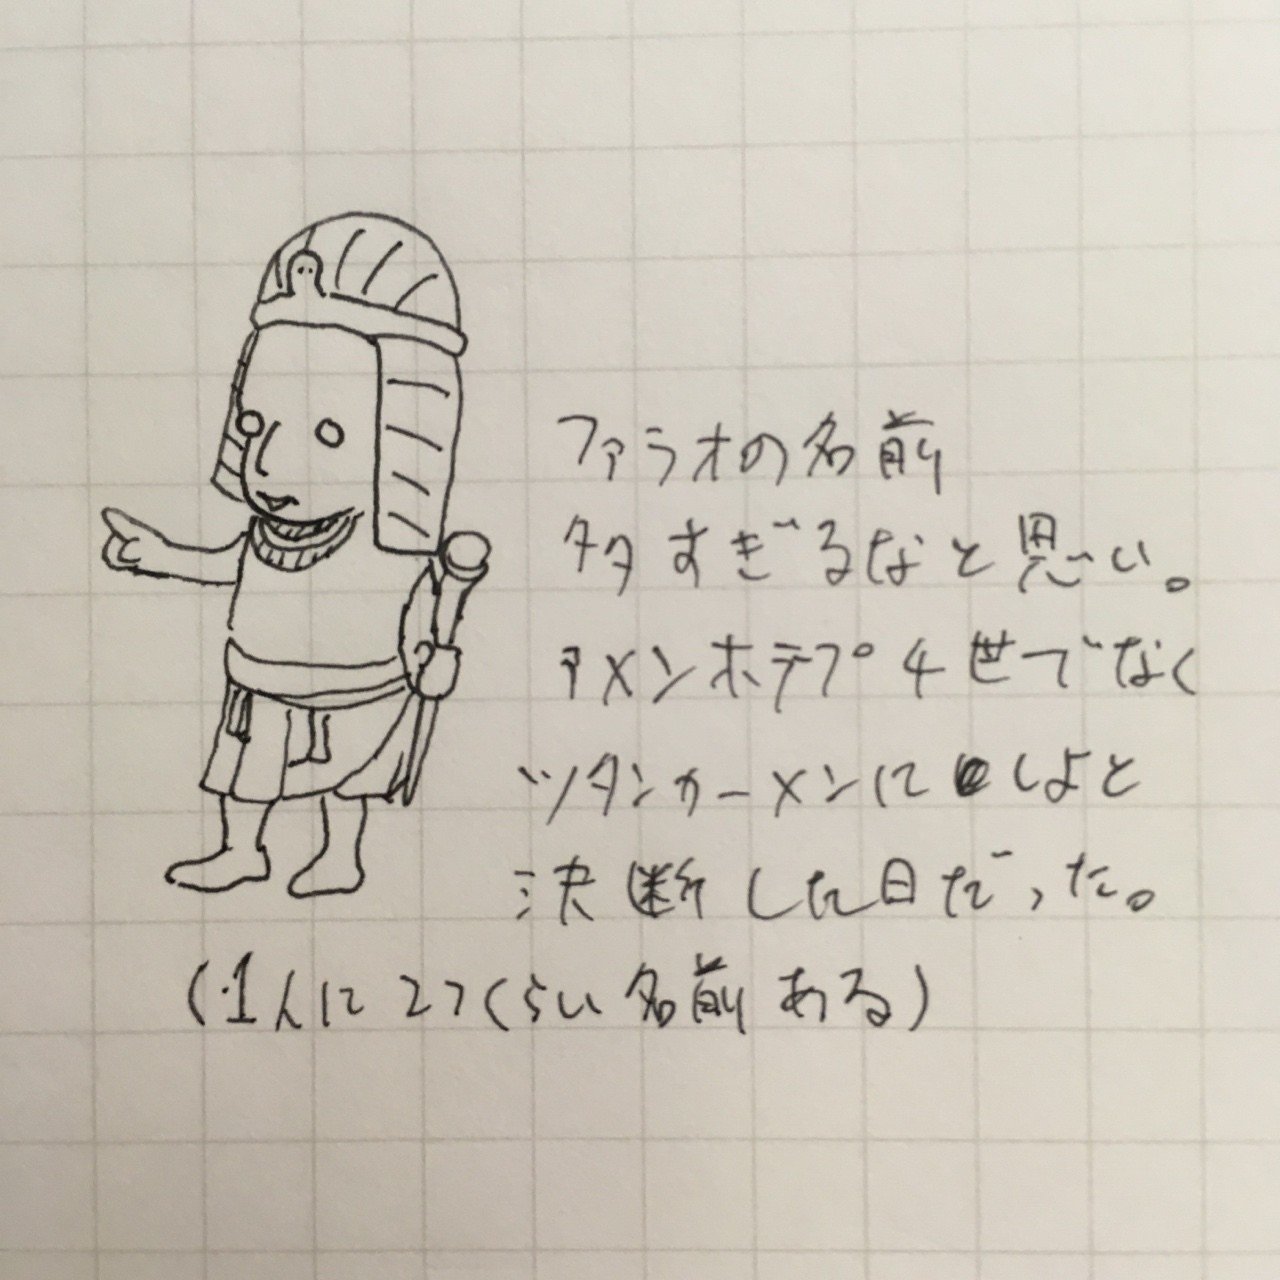 ファラオの名前
多すぎるなと思い。
アメンホテプ4世でなく
ツタンカーメンにしよと
決断した日だった。
(1人に27くらい名前ある)